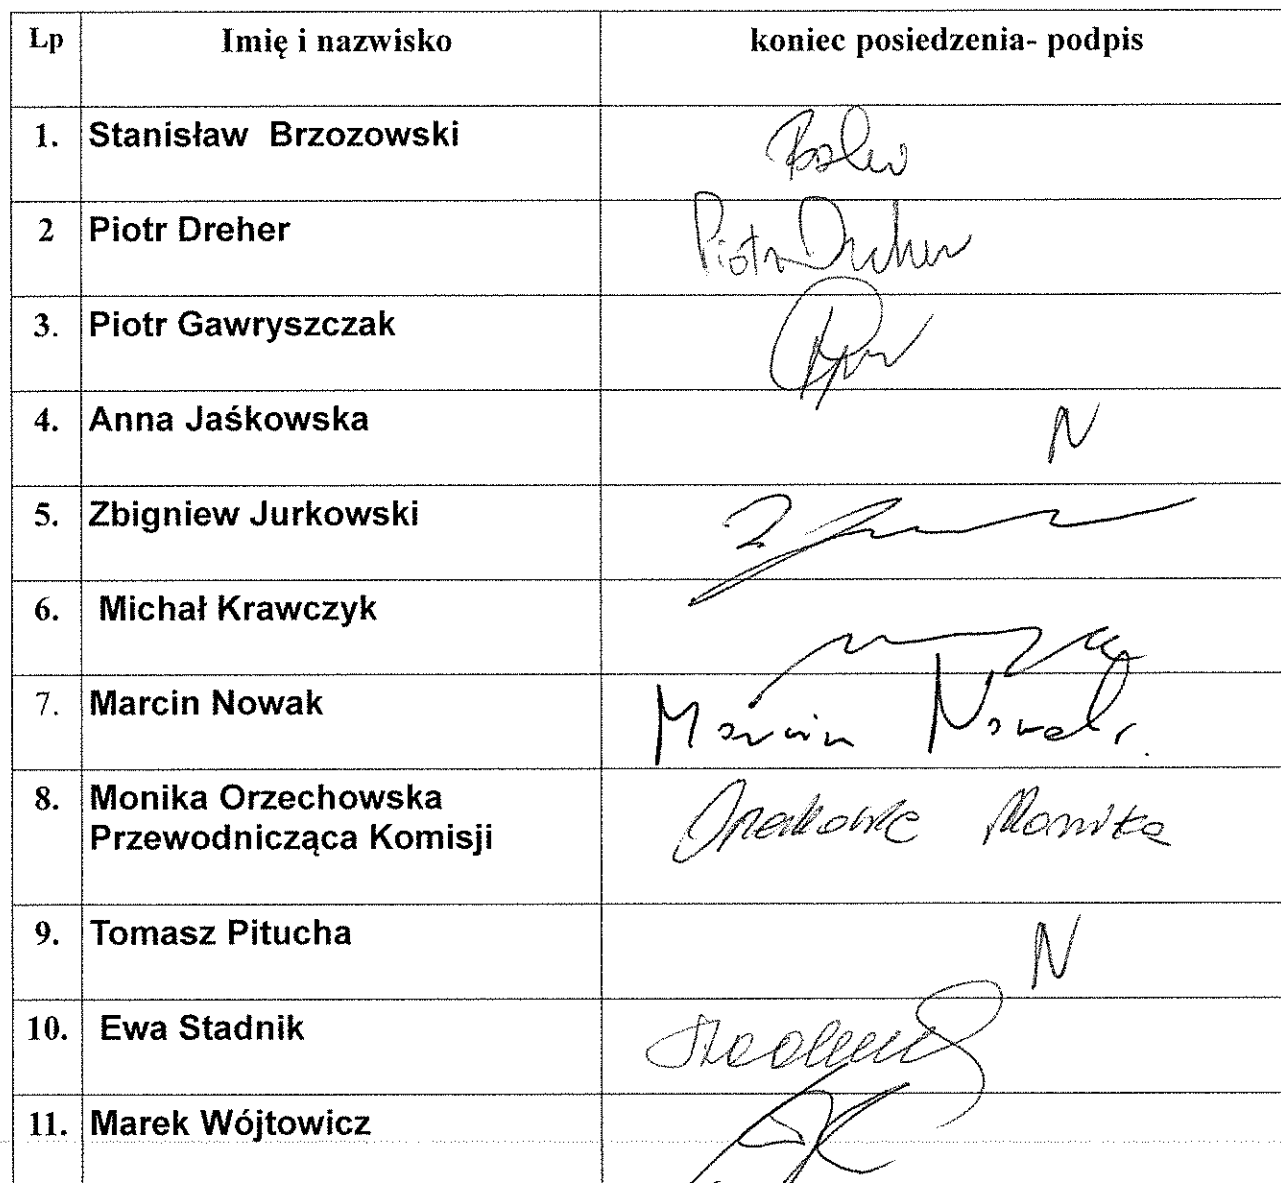 Lp Imię i nazwisko koniec posiedzenia- podpis
1. Stanisław Brzozowski
2 Piotr Dreher Piotr Dreher
3. Piotr Gawryszczak
4. Anna Jaśkowska N
5. Zbigniew Jurkowski
6. Michał Krawczyk
7. Marcin Nowak Marcin Nowak
8. Monika Orzechowska
Przewodnicząca Komisji Monika
9. Tomasz Pitucha N
10. Ewa Stadnik
11. Marek Wójtowicz